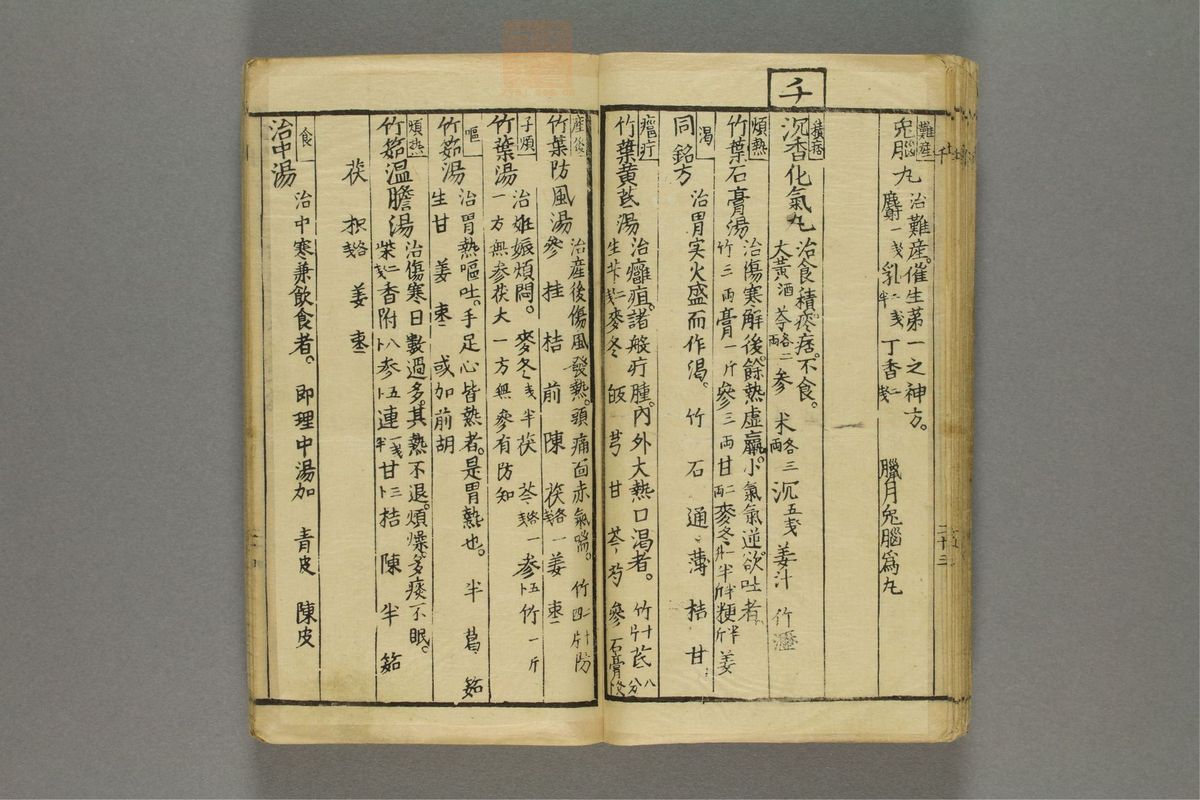 難産
兎腦丸 治難産。催生第一之神方。 臘月兎腦爲丸
麝一戔 乳二戔半 丁香一戔
千
積痞
沉香化氣丸 治食積疼痞。不食。
大黃酒 芩各二兩 参 术各三兩 沉五戔 姜汁 竹瀝
煩熱
竹葉石膏湯 治傷寒解後。餘熱虛羸。小氣氣逆。欲吐者
竹三兩 膏一斤 參三兩 甘二兩 麥冬一升半 半半斤 粳半斤 姜
渴
同銘方 治胃实火盛而作渴。 竹 石 通 薄 桔 甘
癰疔
竹葉黄芪湯 治癰疽。諸般疔腫。內外大熱口渴者。 竹十片 芪八分
生 麥冬 芎 甘 芩 芍 參 石膏
産後
竹葉防風湯 治産後傷風發熱。頭痛面赤氣喘。 竹 防
參 桂 桔 前 陳 茯各一戔 姜 枣二
子煩
竹葉湯 治姙娠煩悶。 麥冬 茯 芩各一戔 参五卜 竹一斤
一方無参茯大 一方無參有防知
嘔
竹茹湯 治胃熱嘔吐。手足心皆熱者。是胃熱也。 半 葛 茹
生甘 姜 枣 或加前胡
煩熱
竹茹温膽湯 治傷寒日數過多。其熱不退。煩燥。多痰不眠。
柴二戔 香附八卜 参五卜 連一戔半 甘三卜 桔 陳 半 茹
茯 枳各戔 姜 枣
食
治中湯 治中寒兼飲食者。即理中湯加 青皮 陳皮